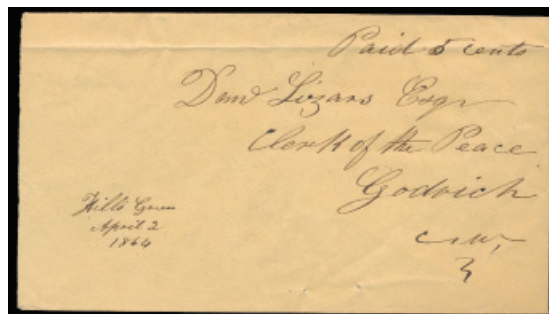 Paid 5 cents
Danl Lizars Esqr
Clerk of the Peace
Godrich
C.W.
Hills Green
April 2
1864